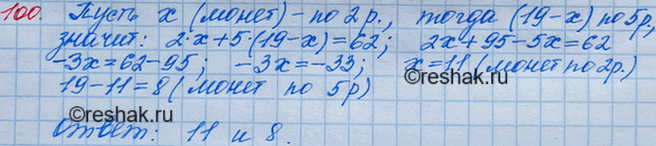 100. Пусть x (монет) - по 2 р., тогда (19-x) по 5р,
значит: 2·x+5·(19-x)=62; 2x+95-5x=62
-3x=62-95; -3x=-33; x=11 (монет по 2р.)
19-11=8 (монет по 5р)
Ответ: 11 и 8.